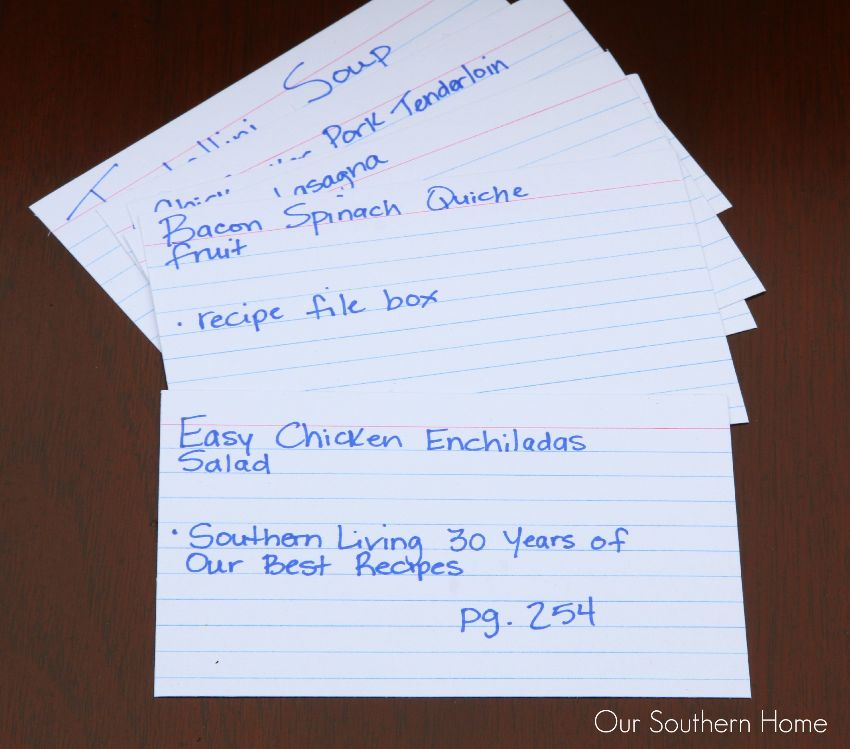 Soup
Pork Tenderloin
Bacon Spinach Quiche
fruit
· recipe file box
Easy Chicken Enchiladas
Salad
· Southern Living 30 Years of
Our Best Recipes
pg. 254
Our Southern Home